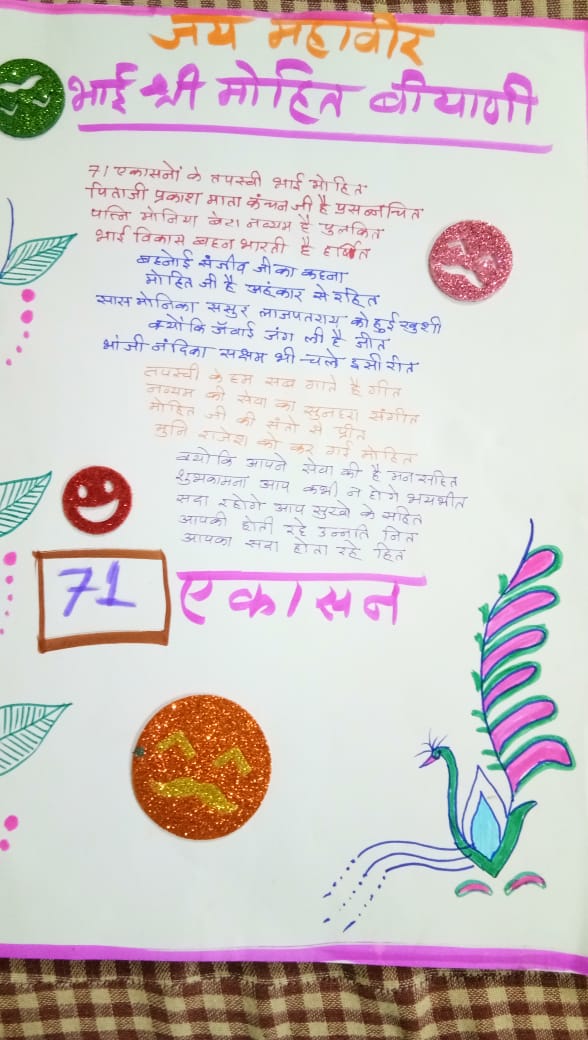 जय महावीर
भाई श्री मोहित बीयाणी
71 एकासनों के तपस्वी भाई मोहित
पिताजी प्रकाश माता कंचन जी है प्रसन्नचित
पत्नि मोनिया बेटा नव्यम है पुलकित
भाई विकास बहन भारती है हर्षित
बहनोई संजीव जी का कहना
मोहित जी है अहंकार से रहित
सास मोनिका ससुर लाजपतराय को हुई खुशी
क्योंकि जँवाई जंग ली है जीत
भांजी नंदिका सक्षम भी चले इसी रीत
तपस्वी के हम सब गाते है गीत
नव्यम की सेवा का सुनहरा संगीत
मोहित जी की संतो से प्रीत
मुनि राजेश को कर गई मोहित
क्योकि आपने सेवा की है मन सहित
शुभकामना आप कभी न होगे भयभीत
सदा रहोगे आप सुखो के सहित
आपकी होती रहे उन्नति नित
आपका सदा होता रहे हित
71 एकासन